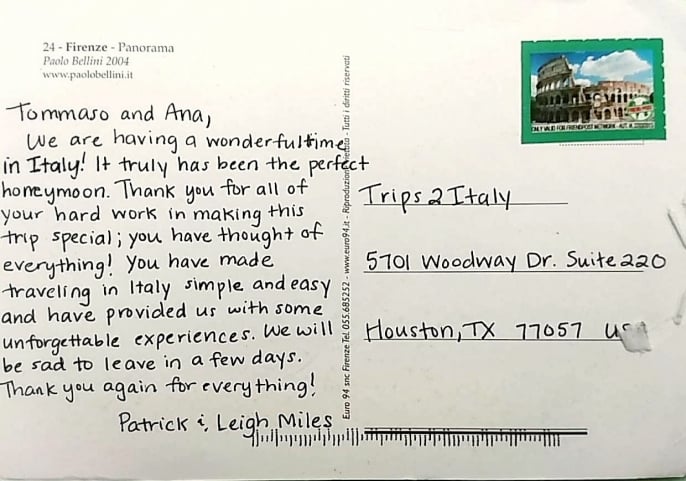 24 - Firenze - Panorama
Paolo Bellini 2004
www.paolobellini.it
Tommaso and Ana,
We are having a wonderful time
in Italy! It truly has been the perfect
honeymoon. Thank you for all of
your hard work in making this
trip special; you have thought of
everything! You have made
traveling in Italy simple and easy
and have provided us with some
unforgettable experiences. We will
be sad to leave in a few days.
Thank you again for everything!
Patrick & Leigh Miles
Euro 94 snc Firenze Tel. 055.685252 - www.euro94.it - Riproduzione vietata - Tutti i diritti riservati
ONLY VALID FOR FRIENDPOST NETWORK - AUT.
Trips 2 Italy
5701 Woodway Dr. Suite 220
Houston, TX 77057 USA